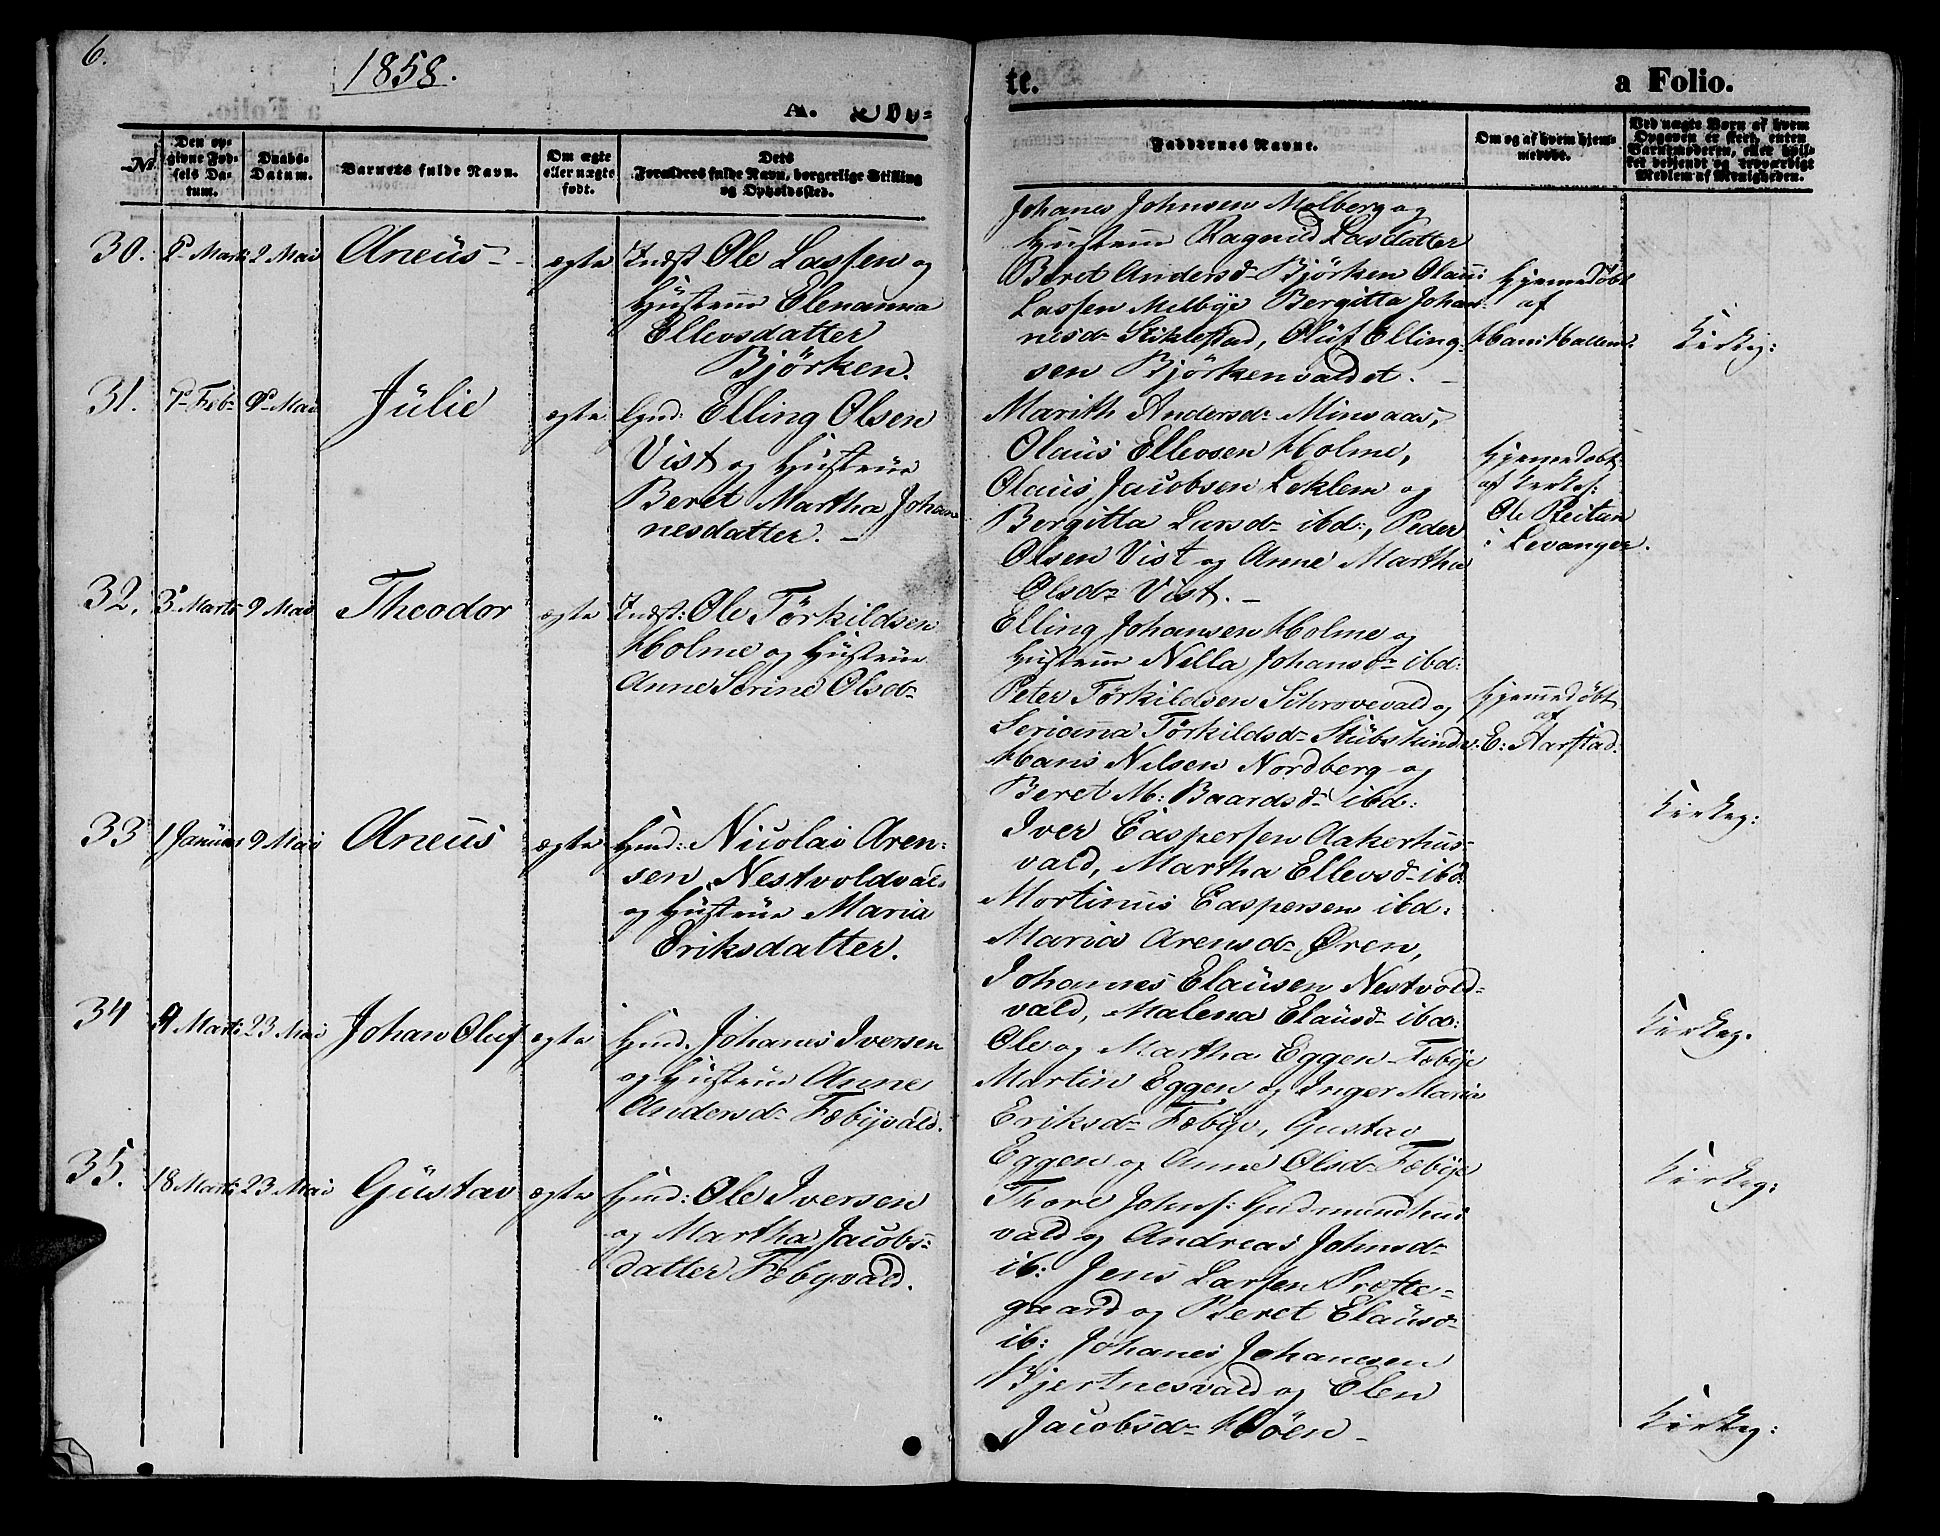 6.
1858.
A. Dø=
te.
a Folio.
No.
Den op=
givne Fød=
sels Da=
tum.
Daabs=
Datum.
Barnets fulde Navn.
Om ægte
eller uægte
født.
Dets
Forældres fulde Navn, borgerlige Stilling
og Opholdssted.
Faddernes Navne.
Om og af hvem hjem=
medøbt.
Ved uægte Børn af hvem
Opgaven er skeet, enten
Barnemoderen, eller hvil=
ket bekjendt og troværdigt
Medlem af Menigheden.
30.
Marts
2 Mai
Aneüs
ægte
Indst Ole Lassen og
Hüstrue Elenanna
Ellevsdatter
Bjørken.
Johanes Johnsen Molberg og
Hustrue Ragnild Lasdatter
Beret Andersd Bjørken Olaus
Lassen Melbye Bergitta Johan
nesd Stiklestad, Olüf Elling=
sen Bjørkenvaldet.
Hjemmedøbt
af
Hans Hallem.
Kirkeg:
31.
7 Feb
9 Mai
Jülie
ægte
Gmd: Elling Olsen
Vist og Hüstrüe
Beret Martha Johan
nesdatter.
Marith Andersd Minsaas,
Olaüs Ellevsen Holme,
Olaus Jacobsen Leklem og
Bergitta Larsd ibd:, Peder
Olsen Vist og Anne Martha
Olsd Vist.
Hjemmedøbt
af Kirkes:
Ole Reitan
i Levanger.
32.
3 Marts
9 Mai
Theodor
ægte
Indst: Ole Törkildsen
Holme og Hüstrüe
Anne Serine Olsd
Elling Johansen Holme og
Hustrue Nella Johansd ibd:
Peter Törkildsen Schrovevald og
Serianna Törkildsd Stübskinds
Hans Nilsen Nordberg og
Beret M: Baardsd ibd:
Hjemmedøbt
af
E: Aarstad.
Kirkeg:
33
1 Januar
9 Mai
Aneüs
ægte
Gmd: Nicolai Aren=
sen Nestvoldvald
og Hüstrüe Maria
Eriksdatter.
Iver Caspersen Aakerhus=
vald, Martha Ellevsd ibd:
Mortinus Caspersen ibd:
Maria Arensd Øren,
Johannes Claüsen Nestvold=
vald, Malena Claüsd ibd:
Kirkeg.
34
9 Marts
23 Mai
Johan Oluf
ægte
Gmd. Johanes Iversen
og Hustrue Anne
Andersd Fæbyvald.
Ole og Martha Eggen Fæbye
Martin Eggen og Inger Maria
Eriksd Fæbye, Gustav
Eggen og Anne Olsd Fæbye
Kirkeg:
35.
18 Marts
23 Mai
Güstav
ægte
Gmd: Ole Iversen
og Martha Jacobs=
datter Fæbyvald.
Thore Johns: Gudmundhus
vald og Andreas Johnsd
ib: Jens Larsen Præste=
gaard og Beret Claüsd
ib: Johanes Johanesen
Bjertnesvald og Elen
Jacobsd Höen
Kirkeg: